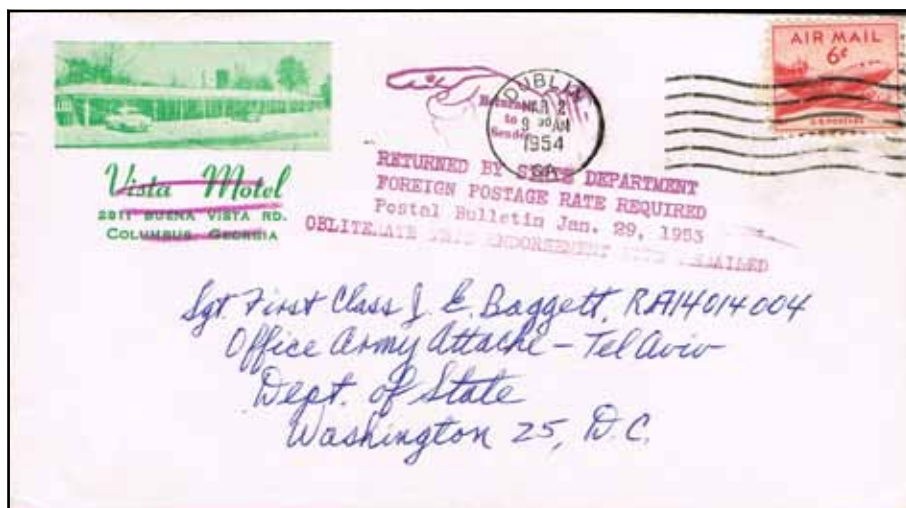 Vista Motel
2811 BUENA VISTA RD.
COLUMBUS, GEORGIA
Returned
to
Sender
DUBLIN
MAR 2
9 30 AM
1954
GA.
AIR MAIL
6¢
U.S. POSTAGE
RETURNED BY STATE DEPARTMENT
FOREIGN POSTAGE RATE REQUIRED
Postal Bulletin Jan. 29, 1953
OBLITERATE THIS ENDORSEMENT WHEN REMAILED
Sgt. First Class J. E. Baggett, RA14014004
Office Army Attache - Tel Aviv
Dept. of State
Washington 25, D.C.